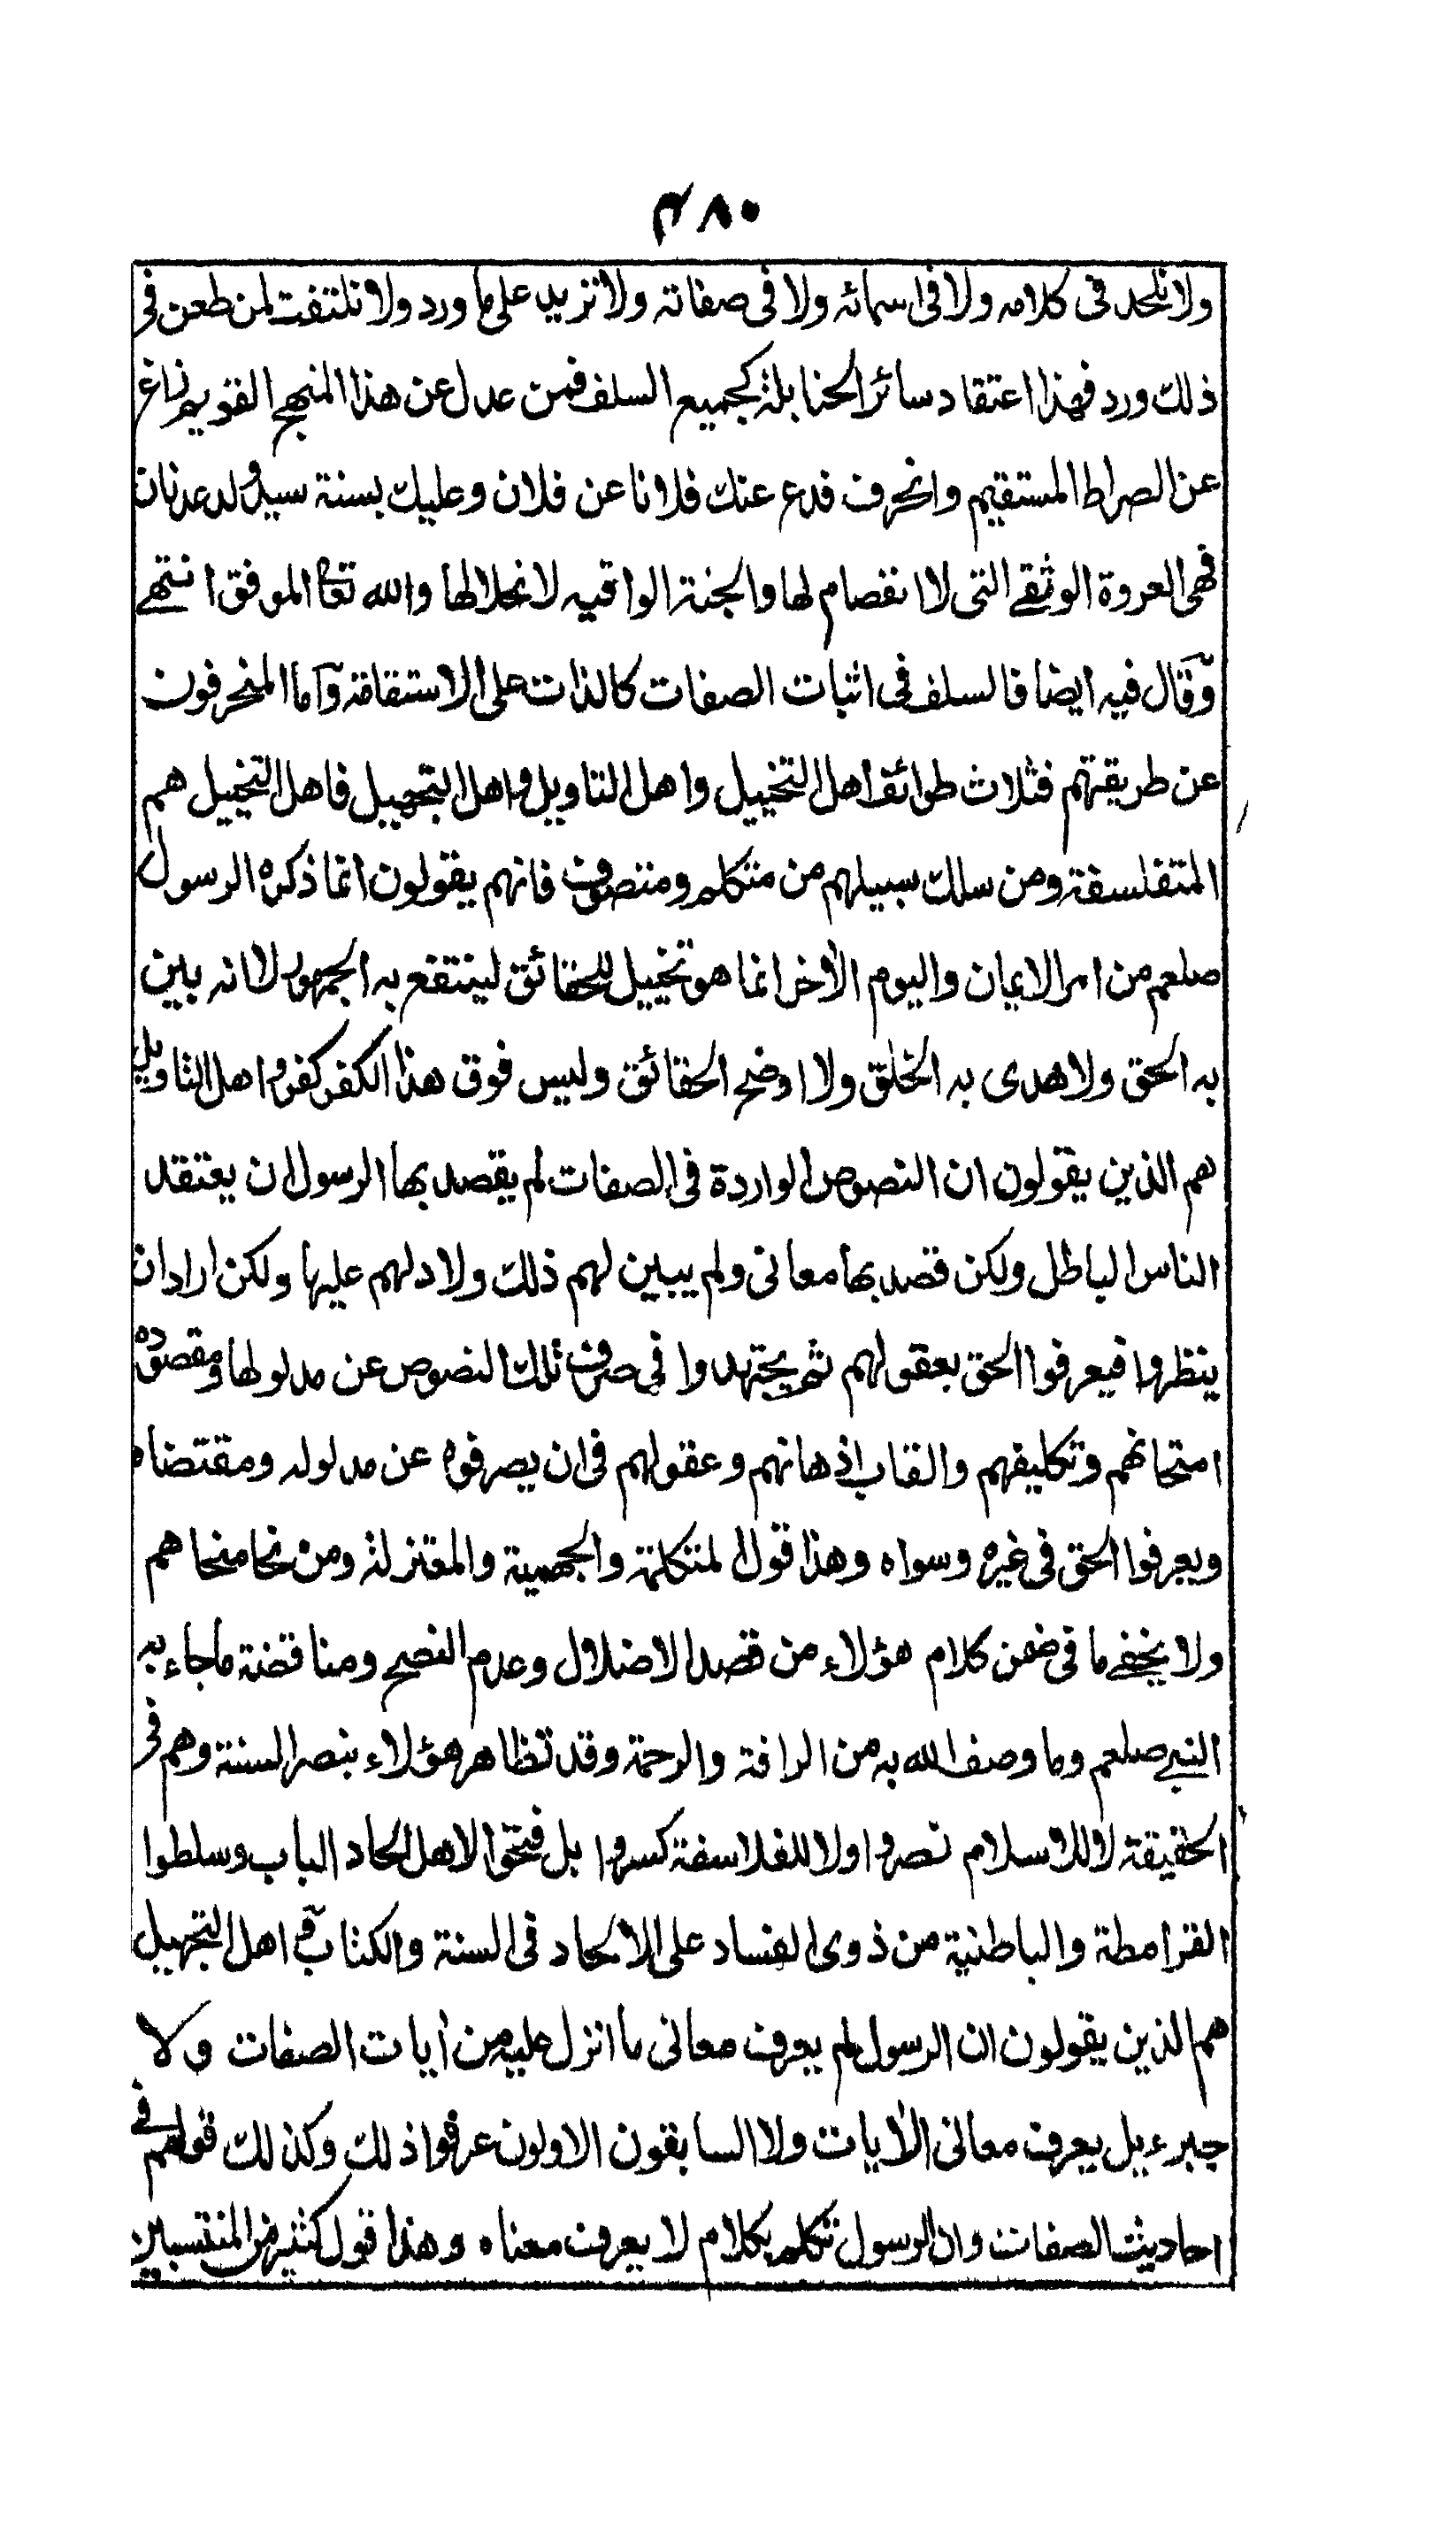 ۴۸۰
ولا نلحد فى كلامه ولا فى اسمائه ولا فى صفاته ولا نزيد على ما ورد ولا نلتفت لمن طعن فى
ذلك ورد فهذا اعتقاد سائر الحنابلة كجميع السلف فمن عدل عن هذا المنهج القويم زاغ
عن الصراط المستقيم وانحرف فدع عنك فلانا عن فلان وعليك بسنة سيد ولد عدنان
فهى العروة الوثقى التى لا انفصام لها والجنة الواقيه لا نحلال لها والله تعا الموفق انتهى
وقال فيه ايضا فالسلف فى اثبات الصفات كالذات على الاستقامة وآما المنحرفون
عن طريقتهم فثلاث طوائف اهل التخييل واهل التاويل واهل التجهيل فاهل التخييل هم
المتفلسفة ومن سلك سبيلهم من متكلم ومتصوف فانهم يقولون انما ذكره الرسول
صلعم من امر الايمان واليوم الأخر انما هو تخييل للحقائق لينتفع به الجمهور لا انه بين
به الحق ولا هدى به الخلق ولا اوضح الحقائق وليس فوق هذا الكفر كفر واهل التاويل
هم الذين يقولون ان النصوص الواردة فى الصفات لم يقصد بها الرسول ان يعتقد
الناس الباطل ولكن قصد بها معانى ولم يبين لهم ذلك ولا دلهم عليها ولكن اراد ان
ينظروا فيعرفوا الحق بعقولهم ثم يجتهدوا فى صرف تلك النصوص عن مدلولها ومقصوده
امتحانهم وتكليفهم واتقاب اذهانهم وعقولهم فى ان يصرفوه عن مدلوله ومقتضاه
ويعرفوا الحق فى غيره وسواه وهذا قول المتكلمة والجهمية والمعتزلة ومن نحا منحاهم
ولا يخفى ما فى ضمن كلام هؤلاء من قصد الاضلال وعدم النصح ومناقضة ماجاء به
النبى صلعم وما وصف الله به من الرافة والرحمة وقد تظاهر هؤلاء بنصر السنة وهم فى
الحقيقة لا للاسلام نصروا ولا للفلاسفة كسروا بل فتحوا لاهل الحاد الباب وسلطوا
القرامطة والباطنية من ذوى الفساد على الالحاد فى السنة والكتاب واهل التجهيل
هم الذين يقولون ان الرسول لم يعرف معانى ما انزل عليه من أيات الصفات ولا
جبرءيل يعرف معانى الأيات ولا السابقون الاولون عرفوا ذلك وكذلك قولهم فى
احاديث الصفات وان الرسول تكلم بكلام لا يعرف معناه وهذا قول كثير من المنتسبين